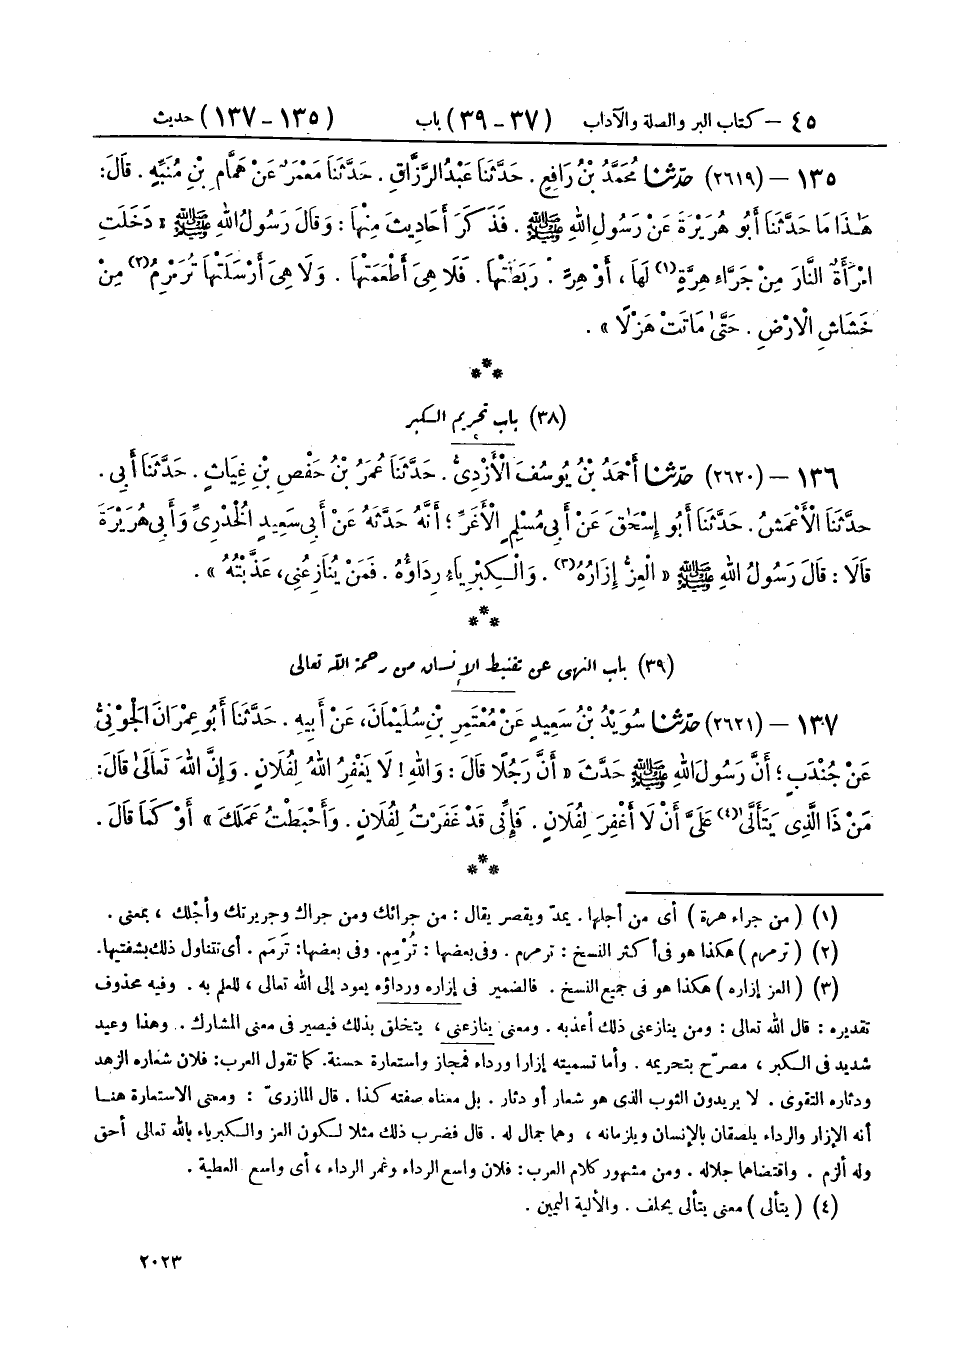 ٤٥ – كتاب البر والصلة والآداب (٣٧ – ٣٩) باب (١٣٥ – ١٣٧) حديث
١٣٥ – (٢٦١٩) حَدَّثَنَا مُحَمَّدُ بْنُ رَافِعٍ . حَدَّثَنَا عَبْدُ الرَّزَّاقِ . حَدَّثَنَا مَعْمَرٌ عَنْ هَمَّامِ بْنِ مُنَبِّهٍ . قَالَ :
هَٰذَا مَا حَدَّثَنَا أَبُو هُرَيْرَةَ عَنْ رَسُولِ اللهِ ﷺ . فَذَكَرَ أَحَادِيثَ مِنْهَا : وَقَالَ رَسُولُ اللهِ ﷺ « دَخَلَتِ
امْرَأَةٌ النَّارَ مِنْ جَرَّاء هِرَّةٍ (١) لَهَا ، أَوْ هِرٍّ . رَبَطَتْهَا . فَلَا هِىَ أَطْعَمَتْهَا . وَلَا هِىَ أَرْسَلَتْهَا تُرَمْرِمُ (٢) مِنْ
خَشَاشِ الْأَرْضِ . حَتَّىٰ مَاتَتْ هَزْلًا » .
***
(٣٨) باب تحريم الكبر
١٣٦ – (٢٦٢٠) حَدَّثَنَا أَحْمَدُ بْنُ يُوسُفَ الْأَزْدِىُّ . حَدَّثَنَا عُمَرُ بْنُ حَفْصِ بْنِ غِيَاثٍ . حَدَّثَنَا أَبِى .
حَدَّثَنَا الْأَعْمَشُ . حَدَّثَنَا أَبُو إِسْحَٰقَ عَنْ أَبِى مُسْلِمٍ الْأَغَرِّ ؛ أَنَّهُ حَدَّثَهُ عَنْ أَبِى سَعِيدٍ الْخُدْرِىِّ وَأَبِى هُرَيْرَةَ
قَالَا : قَالَ رَسُولُ اللهِ ﷺ « الْعِزُّ إِزَارُهُ (٣) . وَالْكِبْرِيَاء رِدَاؤُهُ . فَمَنْ يُنَازِعُنِى ، عَذَّبْتُهُ » .
***
(٣٩) باب النهى عن تقنيط الإنسان من رحمة الله تعالى
١٣٧ – (٢٦٢١) حَدَّثَنَا سُوَيْدُ بْنُ سَعِيدٍ عَنْ مُعْتَمِرِ بْنِ سُلَيْمَانَ ، عَنْ أَبِيهِ . حَدَّثَنَا أَبُو عِمْرَانَ الْجَوْنِىُّ
عَنْ جُنْدَبٍ ؛ أَنَّ رَسُولَ اللهِ ﷺ حَدَّثَ « أَنَّ رَجُلًا قَالَ : وَاللهِ ! لَا يَغْفِرُ اللهُ لِفُلَانٍ . وَإِنَّ اللهَ تَعَالَىٰ قَالَ :
مَنْ ذَا الَّذِى يَتَأَلَّىٰ (٤) عَلَىَّ أَنْ لَا أَغْفِرَ لِفُلَانٍ . فَإِنِّى قَدْ غَفَرْتُ لِفُلَانٍ . وَأَحْبَطْتُ عَمَلَكَ » أَوْ كَمَا قَالَ .
***
(١) ( من جراء هرة ) أى من أجلها . يمدّ ويقصر يقال : من جرائك ومن جراك وجريرتك وأجلك ، بمعنى .
(٢) ( ترمرم ) هكذا هو فى أكثر النسخ : ترمرم . وفى بعضها : تُرْمِم . وفى بعضها : تَرَمَّم . أى تتناول ذلك بشفتيها .
(٣) ( العز إزاره ) هكذا هو فى جميع النسخ . فالضمير فى إزاره ورداؤه يعود إلى الله تعالى ، للعلم به . وفيه محذوف
تقديره : قال الله تعالى : ومن ينازعنى ذلك أعذبه . ومعنى ينازعنى ، يتخلق بذلك فيصير فى معنى المشارك . وهذا وعيد
شديد فى الكبر ، مصرّح بتحريمه . وأما تسميته إزارا ورداء فمجاز واستعارة حسنة . كما تقول العرب : فلان شعاره الزهد
ودثاره التقوى . لا يريدون الثوب الذى هو شعار أو دثار . بل معناه صفته كذا . قال المازرىّ : ومعنى الاستعارة هنا
أنه الإزار والرداء يلصقان بالإنسان ويلزمانه ، وهما جمال له . قال فضرب ذلك مثلا لكون العز والكبرياء بالله تعالى أحق
وله ألزم . واقتضاهما جلاله . ومن مشهور كلام العرب : فلان واسع الرداء وغمر الرداء ، أى واسع العطية .
(٤) ( يتألى ) معنى يتألى يحلف . والألية اليمين .
٢٠٢٣